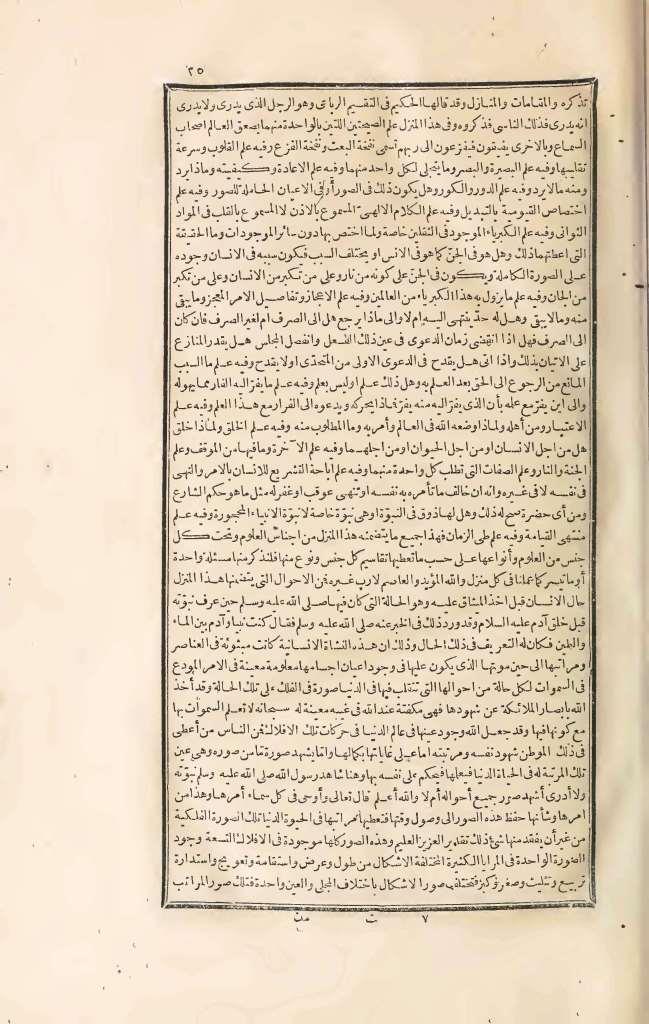 ٢٥
تذكره والمقامات والمنازل وقد قالها الحكيم فى التقسيم الرباعى وهو الرجل الذى يدرى ولا يدرى
انه يدرى فذلك الناسى فذكروه وفى هذا المنزل علم الصيحتين اللتين بالواحدة منهما يصعق العالم اصحاب
السماع وبالاخرى يفيقون فيفزعون الى ربهم تسمى نفخة البعث ونفخة الفزع وفيه علم القلوب وسرعة
تقليبها وفيه علم البصيرة والبصر وما يتجلى لكل واحد منهما وفيه علم الاعادة وكيفيته وماذا يرد
ومنه ما لا يرد وفيه علم الدور والكور وهل يكون ذلك فى الصور أو فى الاعيان الحاملة للصور وفيه علم
اختصاص القيومية بالتبديل وفيه علم الكلام الالهى المسموع بالاذن لا المسموع بالقلب فى المواد
الثوانى وفيه علم الكبرياء الموجود فى الثقلين خاصة ولما اختص بها دون سائر الموجودات وما الحقيقة
التى اعطتهما ذلك وهل هو فى الجنّ كما هو فى الانس او يختلف السبب فيكون سببه فى الانسان وجوده
على الصورة الكاملة ويكون فى الجنّ على كونه من نار وعلى من تكبر من الانسان وعلى من تكبر
من الجان وفيه علم ما يزول به هذا الكبرياء من العالمين وفيه علم الاعجاز وتفاصيل الامر المعجز وما يبقى
منه وما لا يبقى وهل له حدّ ينتهى اليه ام لا والى ماذا يرجع هل الى الصرف ام لغير الصرف فان كان
الى الصرف فهل اذا انقضى زمان الدعوى فى عين ذلك الفعل وانفصل المجلس هل يقدر المنازع
على الاتيان بذلك واذا اتى هل يقدح فى الدعوى الاولى من المتحدّى او لا يقدح وفيه علم ما السبب
المانع من الرجوع الى الحق بعد العلم به وهل ذلك علم او ليس بعلم وفيه علم ما يفرّ اليه الفارّ مما يهوله
والى اين يفرّ مع علمه بأن الذى يفرّ اليه منه يفرّ فماذا يحركه ويدعوه الى الفرار مع هذا العلم وفيه علم
الاعتبار ومن أهله ولماذا وضعه الله فى العالم وأمر به وما المطلوب منه وفيه علم الخلق ولماذا خلق
هل من اجل الانسان او من اجل الحيوان او من اجلهما وفيه علم الآخرة وما فيها من الموقف وعلم
الجنة والنار وعلم الصفات التى تطلب كل واحدة منهما وفيه علم اباحة التشريع للانسان بالامر والنهى
فى نفسه لا فى غيره وانه ان خالف ما تأمره به نفسه او تنهى عوقب او غفر له مثل ما هو حكم الشارع
ومن أى حضرة صح له ذلك وهل لها ذوق فى النبوّة او هى نبوّة خاصة لا نبوّة الانبياء المحجورة وفيه علم
منتهى القيامة وفيه علم طى الزمان فهذا جميع ما يتضمنه هذا المنزل من اجناس العلوم وتحت كل
جنس من العلوم وأنواعها على حسب ما تعطيها تقاسيم كل جنس ونوع منها فلنذكر منها مسئلة واحدة
أو ما تيسر كما عملنا فى كل منزل والله المؤيد والعاصم لا رب غيره فمن الاحوال التى يتضمنها هذا المنزل
حال الانسان قبل اخذ الميثاق عليه وهو الحالة التى كان فيها صلى الله عليه وسلم حين عرف نبوّته
قبل خلق آدم عليه السلام وقد ورد ذلك فى الخبر عنه صلى الله عليه وسلم فقال كنت نبيا وآدم بين الماء
والطين فكان له التعريف فى ذلك الحال وذلك ان هذه النشأة الانسانية كانت مبثوثة فى العناصر
ومراتبها الى حين موتها الذى يكون عليها فى وجود اعيان اجسامها معلومة معينة فى الامر المودع
فى السموات لكل حالة من احوالها التى تتقلب فيها فى الدنيا صورة فى الفلك على تلك الحالة وقد أخذ
الله بابصار الملائكة عن شهودها فهى مكتنفة عند الله فى غيبه معينة له سبحانه لا تعلم السموات بها
مع كونها فيها وقد جعل الله وجود عينها فى عالم الدنيا فى حركات تلك الافلاك فمن الناس من أعطى
فى ذلك الموطن شهود نفسه ومرتبته اما على غاياتها بكمالها واما يشهد صورة مّا من صوره وهى عين
تلك المرتبة له فى الحياة الدنيا فيعلمها فيحكم على نفسه بها وهنا شاهد رسول الله صلى الله عليه وسلم نبوّته
ولا أدرى أشهد صور جميع أحواله أم لا والله أعلم قال تعالى وأوحى فى كل سماء أمرها وهذا من
امرها وشأنها حفظ هذه الصور الى وصول وقتها فتعطيها مراتبها فى الحيوة الدنيا تلك الصورة الفلكية
من غير أن يفقد منها شئ ذلك تقدير العزيز العليم وهذه الصور كلها موجودة فى الافلاك التسعة وجود
الصورة الواحدة فى المرايا الكثيرة المختلفة الاشكال من طول وعرض واستقامة وتعويج واستدارة
تربيع وتثليث وصغر وكبر فتختلف صور الاشكال باختلاف المجلى والعين واحدة فتلك صور المراتب
٧ ت